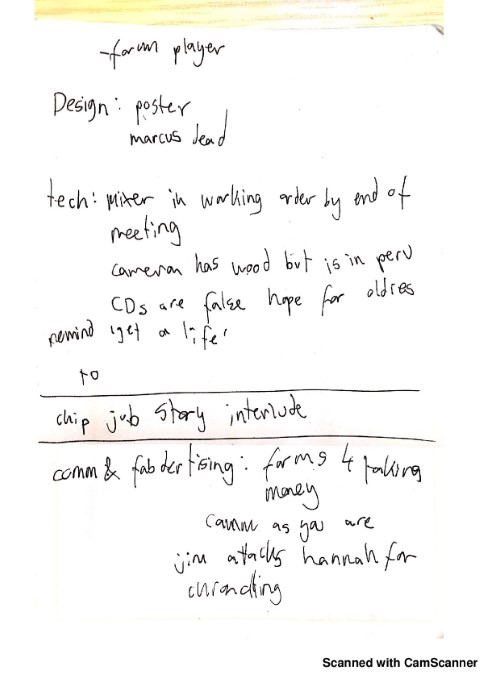 - forum player
Design: poster
marcus dead
tech: mixer in working order by end of
meeting
cameron has wood but is in peru
CDs are false hope for oldies
remind 'get a life'
to
chip job story interlude
comm & fabdertising: forms 4 taking
money
camm as you are
jim attacks hannah for
Scanned with CamScanner